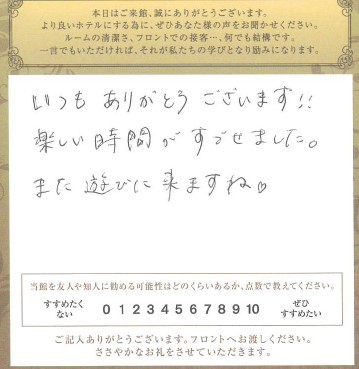 本日はご来館、誠にありがとうございます。
より良いホテルにする為に、ぜひあなた様の声をお聞かせください。
ルームの清潔さ、フロントでの接客…、何でも結構です。
一言でもいただければ、それが私たちの学びとなり励みになります。
いつも ありがとう ございます!!
楽しい時間がすごせました。
また 遊びに 来ますね♡
当館を友人や知人に勧める可能性はどのくらいあるか、点数で教えてください。
すすめたく
ない
0 1 2 3 4 5 6 7 8 9 10
ぜひ
すすめたい
ご記入ありがとうございます。フロントへお渡しください。
ささやかなお礼をさせていただきます。